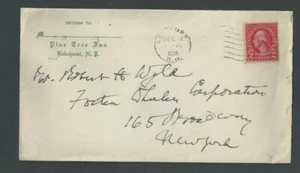 RETURN TO
Pine Tree Inn
Lakehurst, N. J.
DEC
N.J.
Mr. Robert H. Wyle
Foster Wheeler Corporation
165 Broadway
New York
2 2